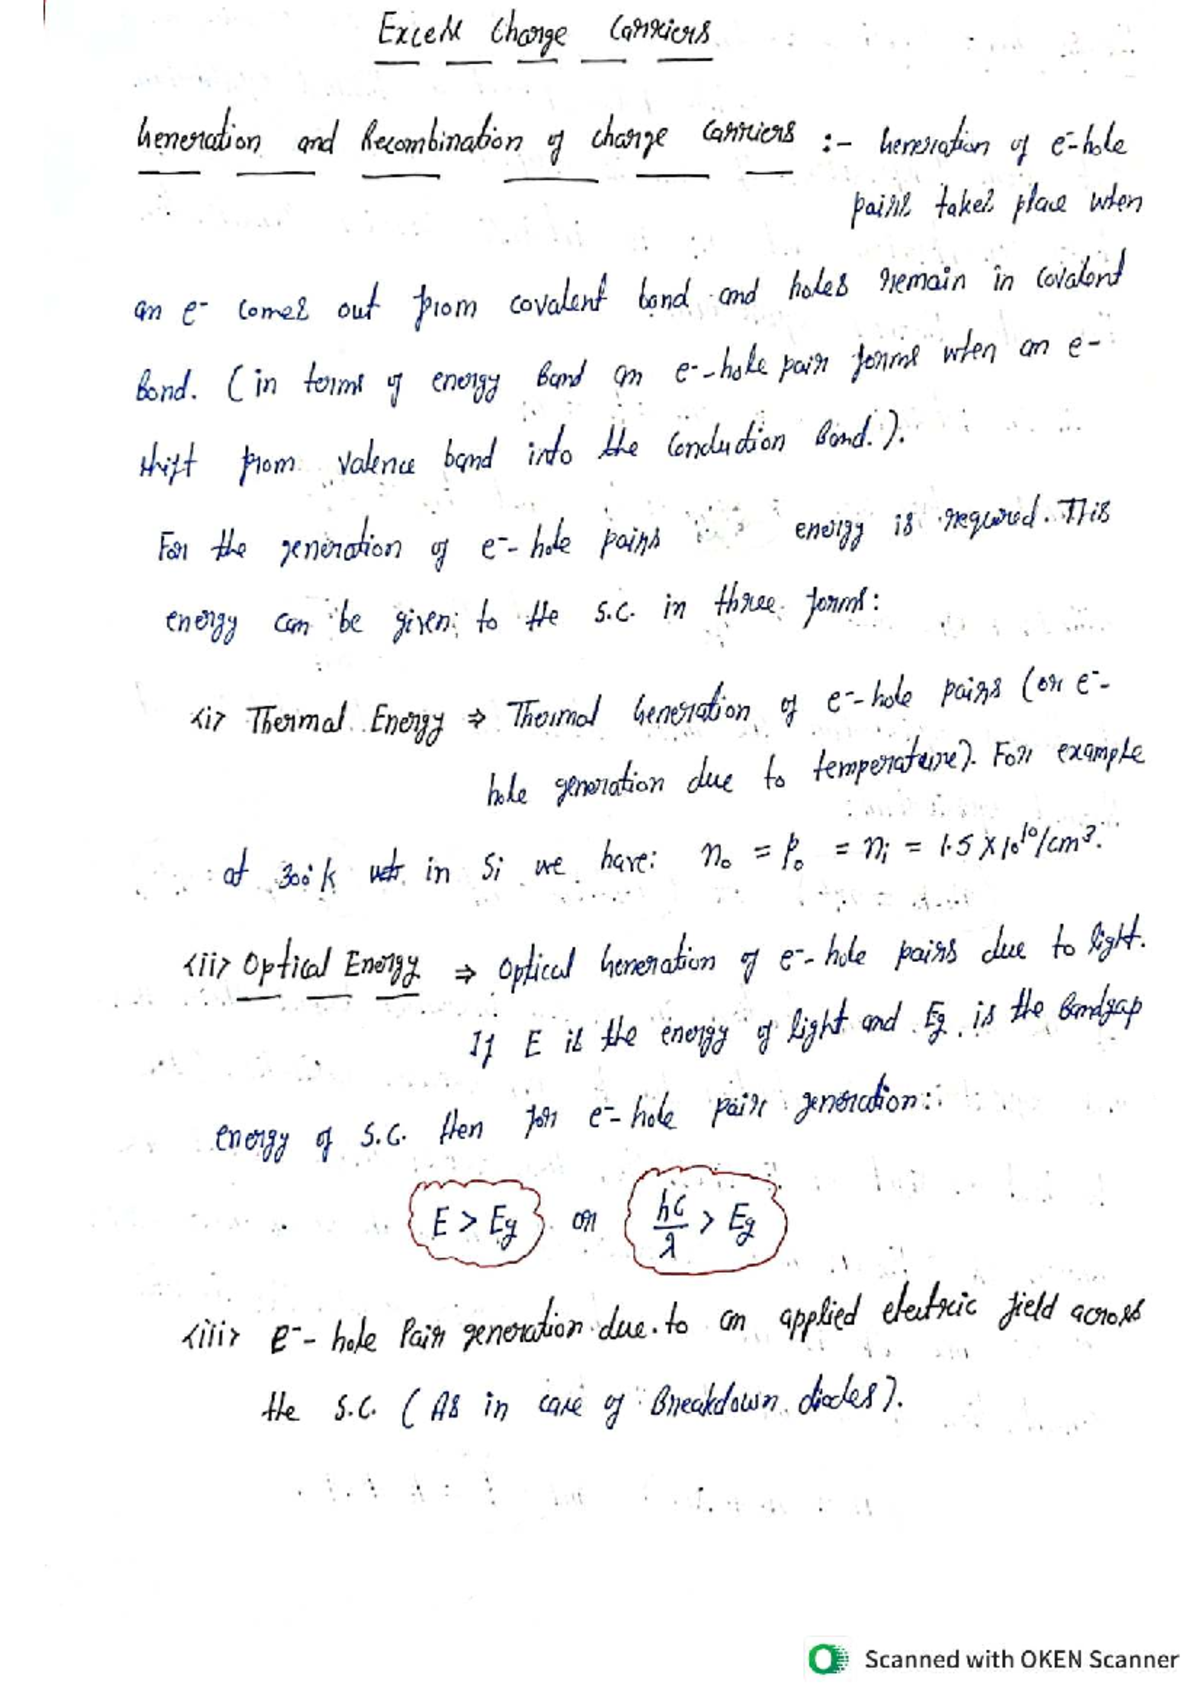 Excess Charge Carriers
Generation and Recombination of charge carriers :- Generation of e⁻-hole
pairs takes place when
an e⁻ comes out from covalent bond and holes remain in covalent
Bond. (in terms of energy Band an e⁻-hole pair forms when an e-
shift from valence band into the Conduction Band.).
For the generation of e⁻-hole pairs energy is required. This
energy can be given to the S.C. in three forms:
<i> Thermal Energy ⇒ Thermal Generation of e⁻-hole pairs (or e⁻-
hole generation due to temperature). For example
at 300k in Si we have: n₀ = p₀ = nᵢ = 1.5 X 10¹⁰/cm³.
<ii> Optical Energy ⇒ Optical Generation of e⁻-hole pairs due to light.
If E is the energy of light and Eg is the Bandgap
energy of S.C. then for e⁻-hole pair generation:
E > Eg or hc/λ > Eg
<iii> e⁻-hole Pair generation due to an applied electric field across
the S.C. (As in case of Breakdown diodes).
Scanned with OKEN Scanner